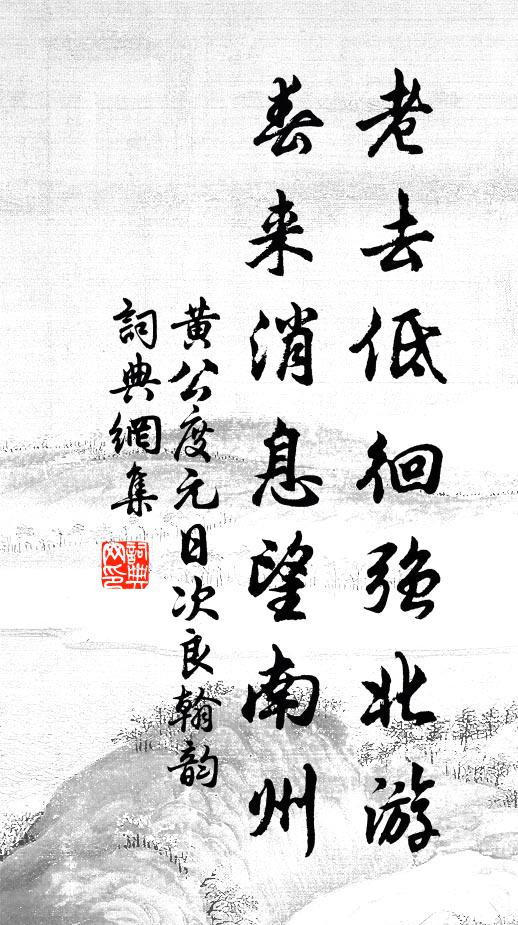 老去低徊强北游
春来消息望南州
黄公度元日次良翰韵
詞典網集
詞典网印